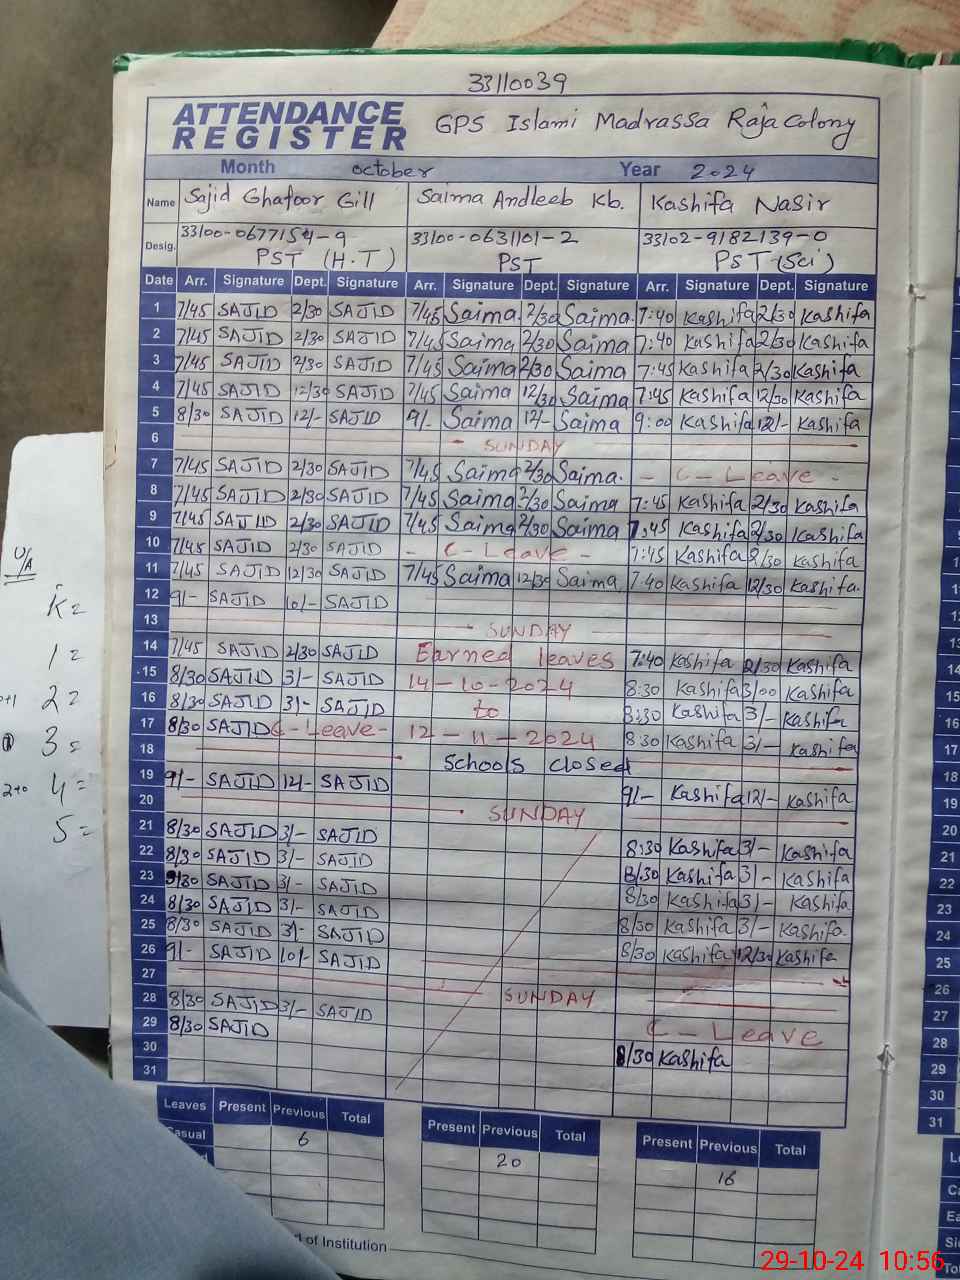 33110039
ATTENDANCE REGISTER GPS Islami Madrassa Raja Colony
Month october Year 2024
Name Sajid Ghafoor Gill Saima Andleeb Kb. Kashifa Nasir
Desig. 33100-0677154-9 33100-0631101-2 33102-9182139-0
PST (H.T) PST PST (Sci)
Date Arr. Signature Dept. Signature Arr. Signature Dept. Signature Arr. Signature Dept. Signature
1 7/45 SAJID 2/30 SAJID 7/45 Saima 2/30 Saima. 7:40 Kashifa 2/30 Kashifa
2 7/45 SAJID 2/30 SAJID 7/45 Saima 2/30 Saima 7:40 Kashifa 2/30 Kashifa
3 7/45 SAJID 2/30 SAJID 7/45 Saima 2/30 Saima 7:45 Kashifa 2/30 Kashifa
4 7/45 SAJID 12/30 SAJID 7/45 Saima 12/30 Saima 7:45 Kashifa 12/30 Kashifa
5 8/30 SAJID 12/- SAJID 9/- Saima 12/- Saima 9:00 Kashifa 12/- Kashifa
6 SUNDAY
7 7/45 SAJID 2/30 SAJID 7/45 Saima 2/30 Saima. - C - Leave -
8 7/45 SAJID 2/30 SAJID 7/45 Saima 2/30 Saima 7:45 Kashifa 2/30 Kashifa
9 7/45 SAJID 2/30 SAJID 7/45 Saima 2/30 Saima 7:45 Kashifa 2/30 Kashifa
10 7/45 SAJID 2/30 SAJID - C - Leave - 7:45 Kashifa 2/30 Kashifa
11 7/45 SAJID 12/30 SAJID 7/45 Saima 12/30 Saima 7:40 Kashifa 12/30 Kashifa.
12 9/- SAJID 10/- SAJID
13 SUNDAY
14 7/45 SAJID 2/30 SAJID Earned leaves 7:40 Kashifa 2/30 Kashifa
15 8/30 SAJID 3/- SAJID 14-10-2024 8:30 Kashifa 3/00 Kashifa
16 8/30 SAJID 3/- SAJID to 8:30 Kashifa 3/- Kashifa
17 8/30 SAJID C - Leave - 12-11-2024 8:30 Kashifa 3/- Kashifa
18 Schools closed
19 9/- SAJID 12/- SAJID 9/- Kashifa 12/- Kashifa
20 SUNDAY
21 8/30 SAJID 3/- SAJID 8:30 Kashifa 3/- Kashifa
22 8/30 SAJID 3/- SAJID 8/:30 Kashifa 3/- Kashifa
23 8/30 SAJID 3/- SAJID 8/30 Kashifa 3/- Kashifa
24 8/30 SAJID 3/- SAJID 8/30 Kashifa 3/- Kashifa.
25 8/30 SAJID 3/- SAJID 8/30 Kashifa 12/30 Kashifa
26 9/- SAJID 10/- SAJID
27 SUNDAY
28 8/30 SAJID 3/- SAJID C - Leave
29 8/30 SAJID 8/30 Kashifa
30
31
Leaves Present Previous Total Present Previous Total Present Previous Total
Casual 6 20 16
of Institution
U/A
K=
1=
2=
3=
4=
5=
14
15
16
17
18
19
20
21
22
23
24
25
26
27
28
29
30
31
29-10-24 10:56